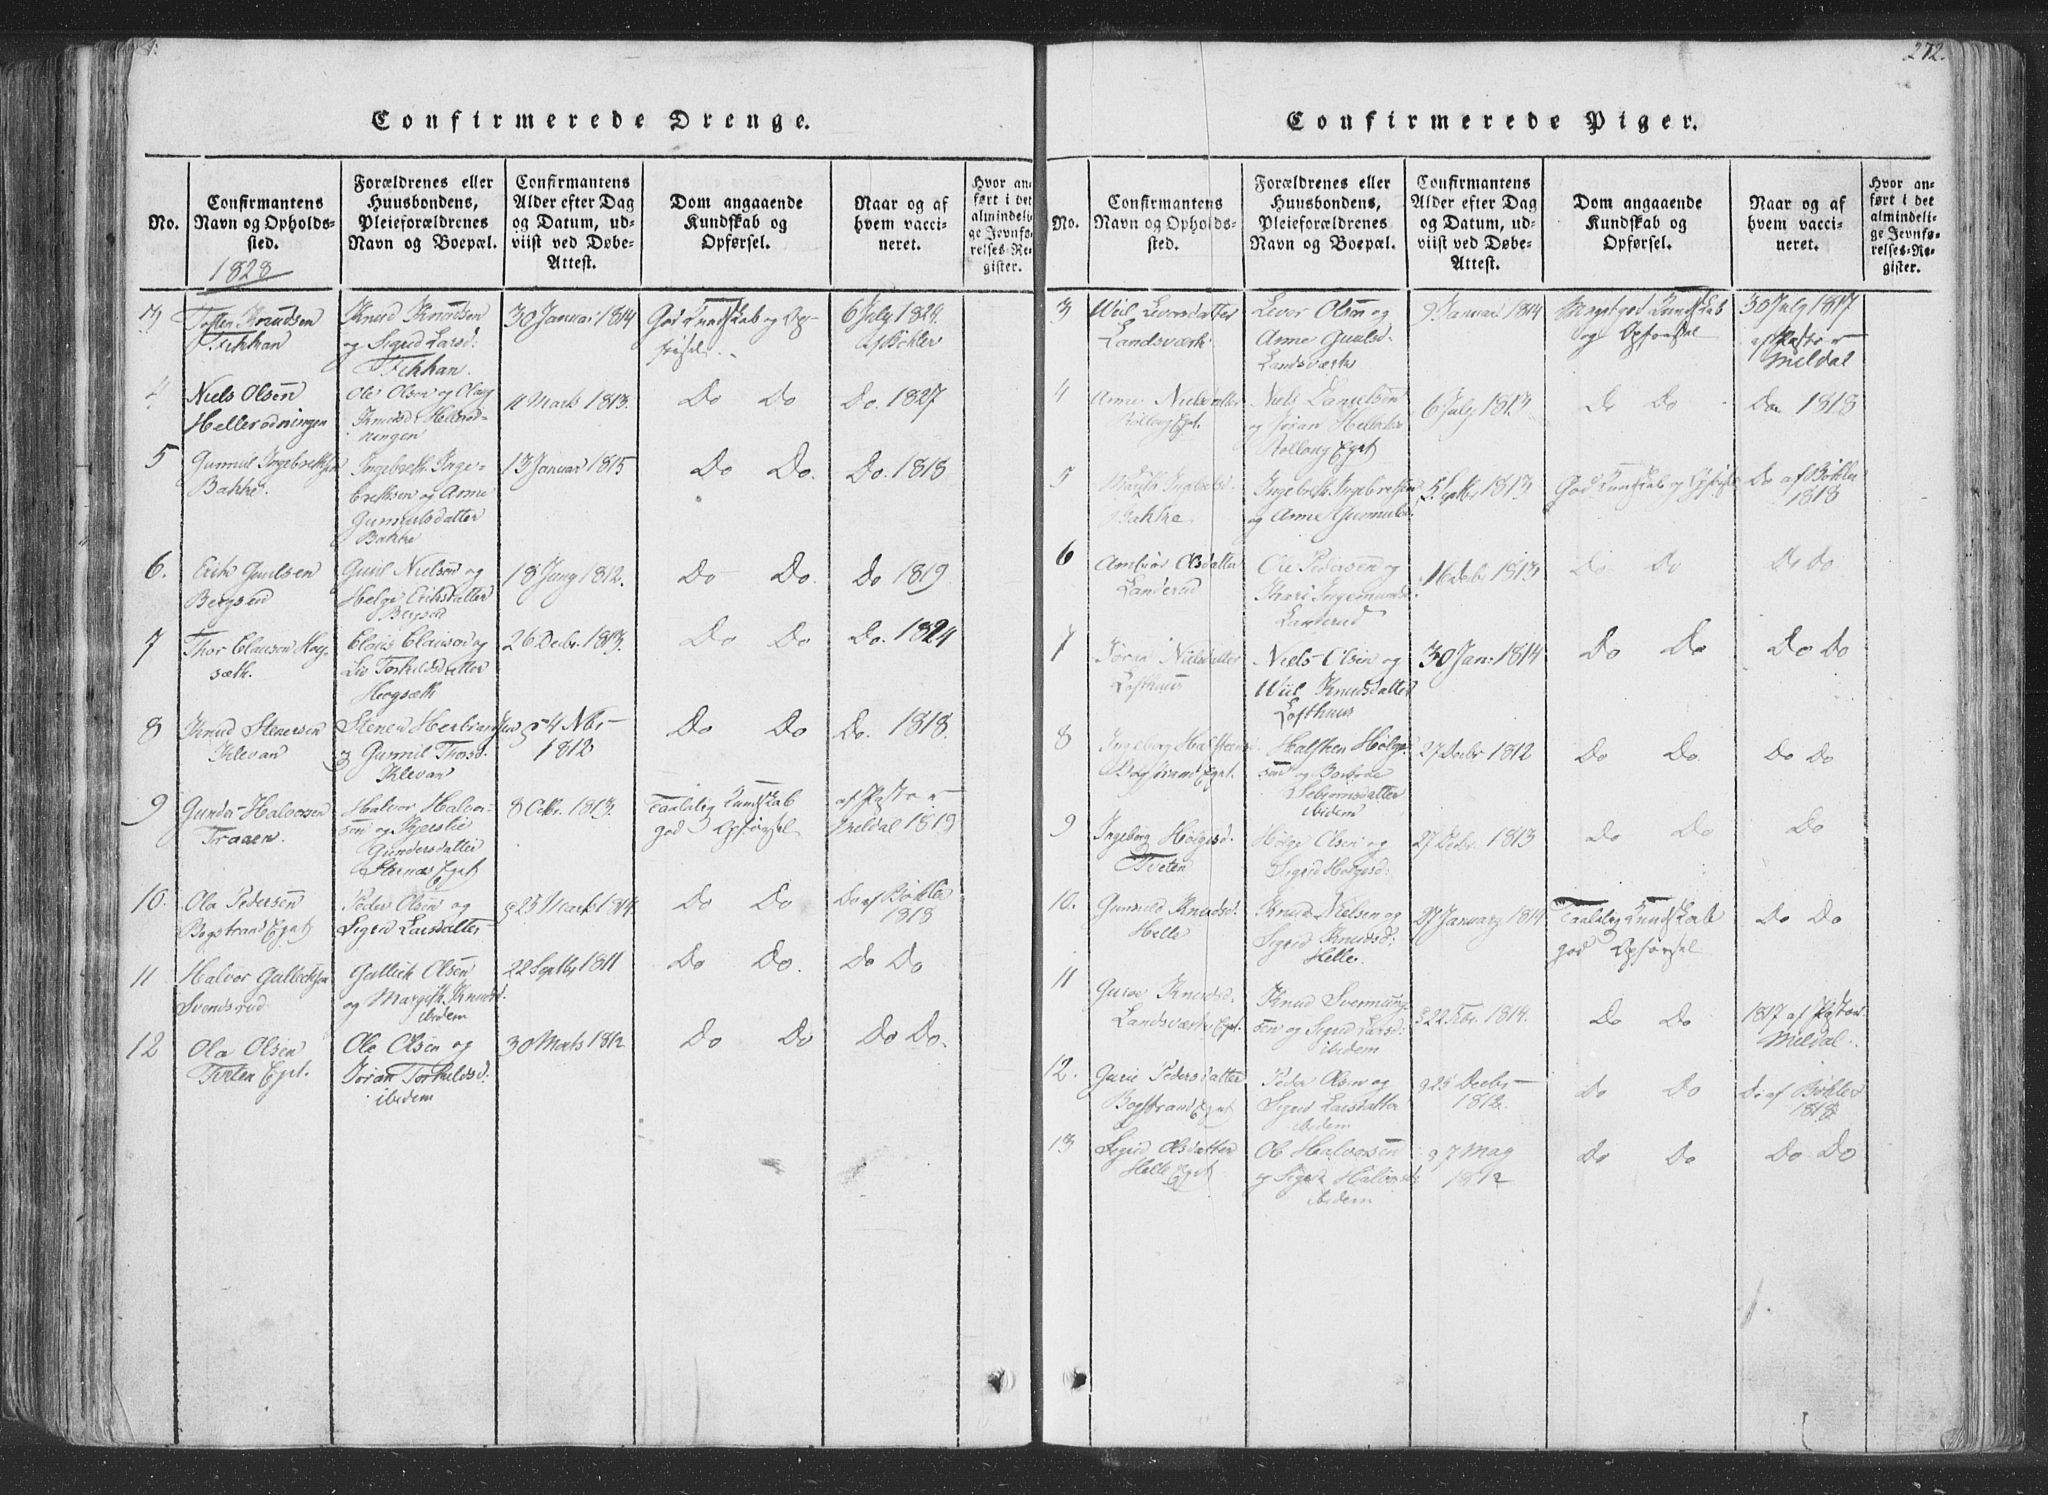 272.
Confirmerede Drenge.
No.
Confirmantens
Navn og Opholds-
sted.
1828
Forældrenes eller
Huusbondens,
Pleieforældrenes
Navn og Boepæl.
Confirmantens
Alder efter Dag
og Datum, ud-
viist ved Døbe-
Attest.
Dom angaaende
Kundskab og
Opførsel.
Naar og af
hvem vacci-
neret.
Hvor an-
ført i det
almindeli-
ge Jevnfø-
relses-Re-
gister.
3
Knudsen
Knud Knudsen
og Sigrid Larsd:
30 Januar 1814
God Kundskab og Op-
førsel.
6 July 1824
af Bøkler
4
Niels Olsen
Hellerødningen
Ole Olsen og
Knudsd. Hellerød-
ningen
11 Marts 1813.
Do Do
Do. 1827
5
Gunnul Ingebrethsen
Bakke.
Ingebreth Inge-
brethsen og Anne
Gunnulsdatter
Bakke
13 Januar 1815
Do Do.
Do. 1818
6.
Erik Guulsen
Bergsed
Guul Nielsen og
Helge Eriksdatter
Bergsed
18 Juny 1812.
Do Do.
Do 1819
7
Thor Clausen Hog-
sæth.
Claus Clausen og
Liv Torkildsdatter
Hogsæth
26 Decbr. 1813.
Do Do
Do. 1824
8
Knud Stenersen
Klevan
Stener Herbrandsen
og Gunnil Thorsd.
Klevan
4 Nbr
1812
Do Do
Do. 1818.
9
Gunder Halvorsen
Traaen.
Halvor Halvor-
sen og Kjerstie
Gundersdatter
Eget
8 Octbr. 1813.
Taalelig Kundskab
god Opførsel
af Pastor
Meldal 1819
10.
Ole Pedersen
Bogstrand Eget
Peder Olsen og
Sigrid Larsdatter
25 Marts 1814.
Do Do
Do af Bøkler
1818
11
Halvor Gulleichsen
Svendsrud
Gulleik Olsen
og Margith Knudsd.
ibidem
22 Septbr 1811
Do Do.
Do Do
12
Ole Olsen
Tveten Eget.
Ole Olsen og
Jøran Torkildsd:
ibidem
30 Marts 1812
Do Do
Do Do.
Confirmerede Piger.
No.
Confirmantens
Navn og Opholds-
sted.
Forældrenes eller
Huusbondens,
Pleieforældrenes
Navn og Boepæl.
Confirmantens
Alder efter Dag
og Datum, ud-
viist ved Døbe-
Attest.
Dom angaaende
Kundskab og
Opførsel.
Naar og af
hvem vacci-
neret.
Hvor an-
ført i det
almindeli-
ge Jevnfø-
relses-Re-
gister.
3
Wiil Leversdatter
Landsværk
Lever Olsen og
Anne Guulsd.
Landsværk
9 Januar 1814
Meget god Kundskab
og Opførsel
30 July 1817
af Pastor
Meldal
4
Anne Nielsdatter
Eget.
Niels Danielsen
og Jøran
Eget
6 July 1813
Do Do
Do. 1818
5
Margith Ingebretsd.
Bakke
Ingebreth Ingebretsen
og Anne Gunnulsd.
5 Septbr 1813
God Kundskab og Opførsel
Do af Bøkler
1818
6
Anlaug Olsdatter
Landerud
Ole Pedersen og
Kari Ingemundsd.
Landerud
16 Decbr 1813
Do Do
Do Do
7
Jøran Nielsdatter
Lofthuus
Niels Olsen og
Wiil Knudsdatter
Lofthuus
30 Jan: 1814
Do Do
Do Do
8
Ingeborg Halstensd.
Bogstrand Eget.
Halsten Helge-
sen og Barbroe
Sebiornsdatter
ibidem
27 Decbr 1812
Do Do.
Do Do
9
Ingeborg Helgesd.
Tveten
Helge Olsen og
Sigrid Helgesd:
27 Decbr. 1813
Do Do
Do
10.
Gunvild Knudsd.
Helle
Knud Nielsen og
Sigrid Knudsd:
Helle.
27 January 1814.
Taalelig Kundskab
god Opførsel
Do Do
11
Guroe Knudsd.
Landsværk Eget.
Knud Svennung-
sen og Sigrid Larsd:
ibidem
22 Febr. 1814.
Do Do
1817 af Pastor
Meldal.
12.
Gurie Pedersdatter
Bogstrand Eget
Peder Olsen og
Sigrid Larsdatter
ibidem
25 Decbr
1812.
Do Do
Do af Bøkler
1818
13
Sigrid Olsdatter
Helle Eget
Ole Halvorsen
og Sigrid Halvorsd:
ibidem
7 May
1812
Do Do
Do Do